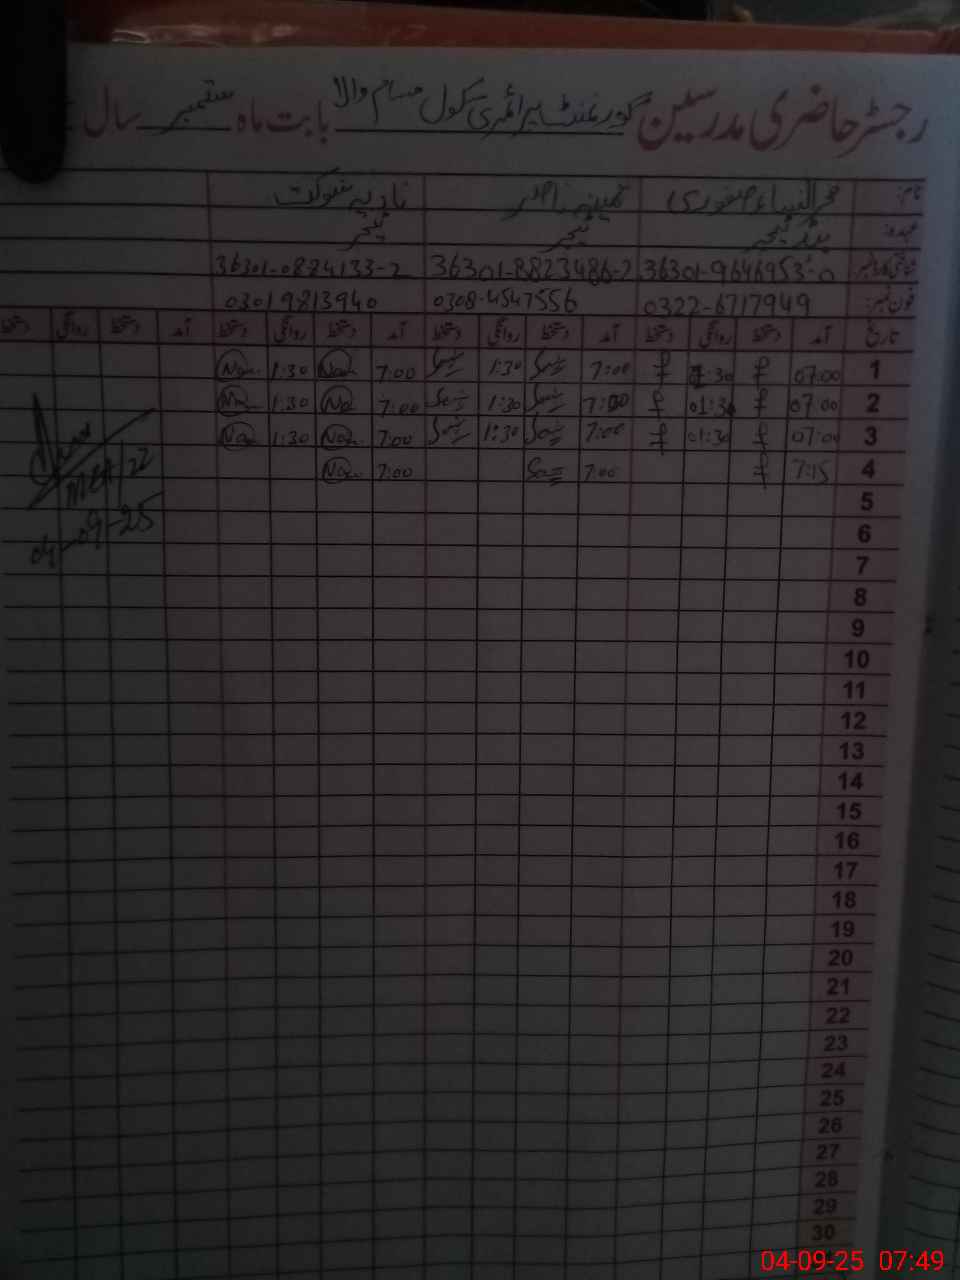 رجسٹر حاضری مدرسین گورنمنٹ پرائمری سکول مسام والا بابت ماہ ستمبر سال
نام: فخر النساء صفوری ثمینہ ناصر نادیہ شوکت
عہدہ: ہیڈ ٹیچر ٹیچر ٹیچر
شناختی کارڈ نمبر: 36301-9646953-0 36301-8823486-2 36301-0884133-2
فون نمبر: 0322-6717949 0308-4547556 03019813940
تاریخ آمد دستخط روانگی دستخط آمد دستخط روانگی دستخط آمد دستخط روانگی دستخط آمد دستخط روانگی دستخط
1 07:00 01:30 7:00 1:30 7:00 1:30
2 07:00 01:30 7:00 1:30 7:00 1:30
3 07:00 01:30 7:00 1:30 7:00 1:30
4 7:15 7:00 7:00
MEA/22
04-09-25
5
6
7
8
9
10
11
12
13
14
15
16
17
18
19
20
21
22
23
24
25
26
27
28
29
30
04-09-25 07:49